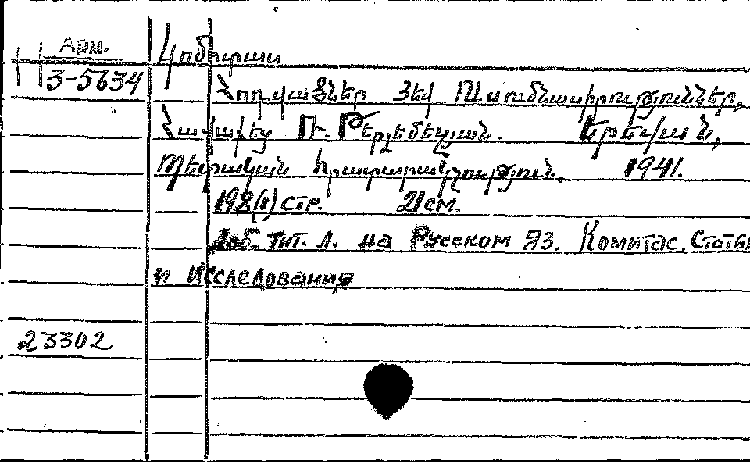 Арм.
3-5634
Կոմիտաս
Հոդվածներ յեվ Ուսումնասիրություններ,
Հավաքեց Ռ. Թերլեմեզյան. Երեվան,
Պետական հրատարակչություն, 1941.
198(1) стр. 21 см.
Доб. тит. л. на Русском яз. Комитас. Статьи
и Исследования
23302